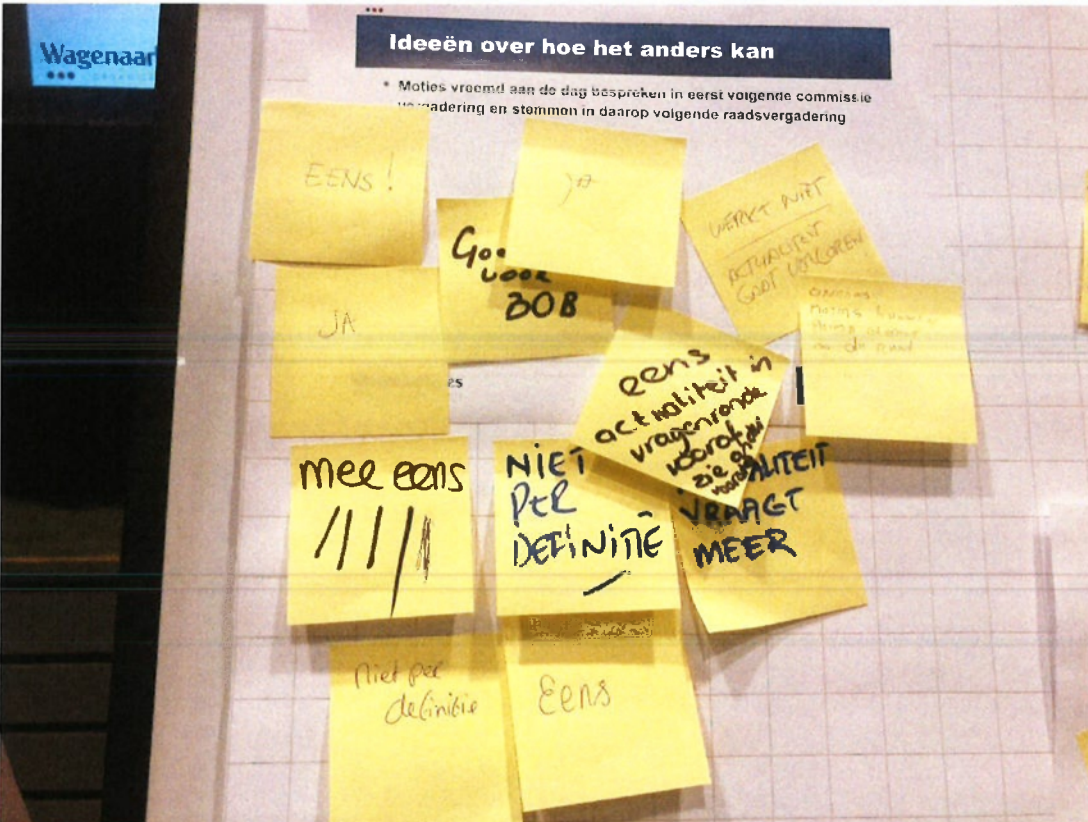 Wagenaar
Ideeën over hoe het anders kan
• Moties vreemd aan de dag bespreken in eerst volgende commissie
vergadering en stemmen in daarop volgende raadsvergadering
EENS!
ja
WERKT NIET
ACTUALITEIT
GAAT VERLOREN
voor
BOB
JA
eens
actualiteit in
vragenronde
vooraf
zie
es
mee eens
NIET
PER
DEFINITIE
ALITEIT
VRAAGT
MEER
niet per
definitie
Eens